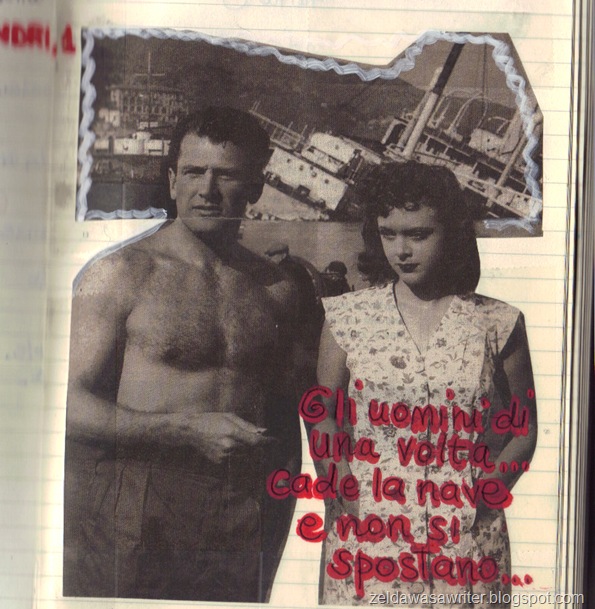 NDRI, 1
Gli uomini di
una volta...
cade la nave
e non si
spostano...
zeldawasawriter.blogspot.com